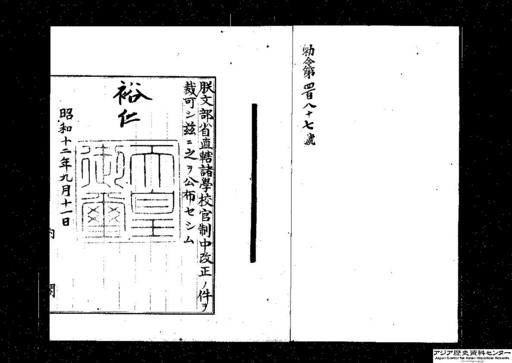 勅令第四百八十七號
朕文部省直轄諸學校官制中改正ノ件ヲ
裁可シ玆ニ之ヲ公布セシム
裕仁
天皇
御璽
昭和十二年九月十一日
内閣
アジア歴史資料センター
Japan Center for Asian Historical Records